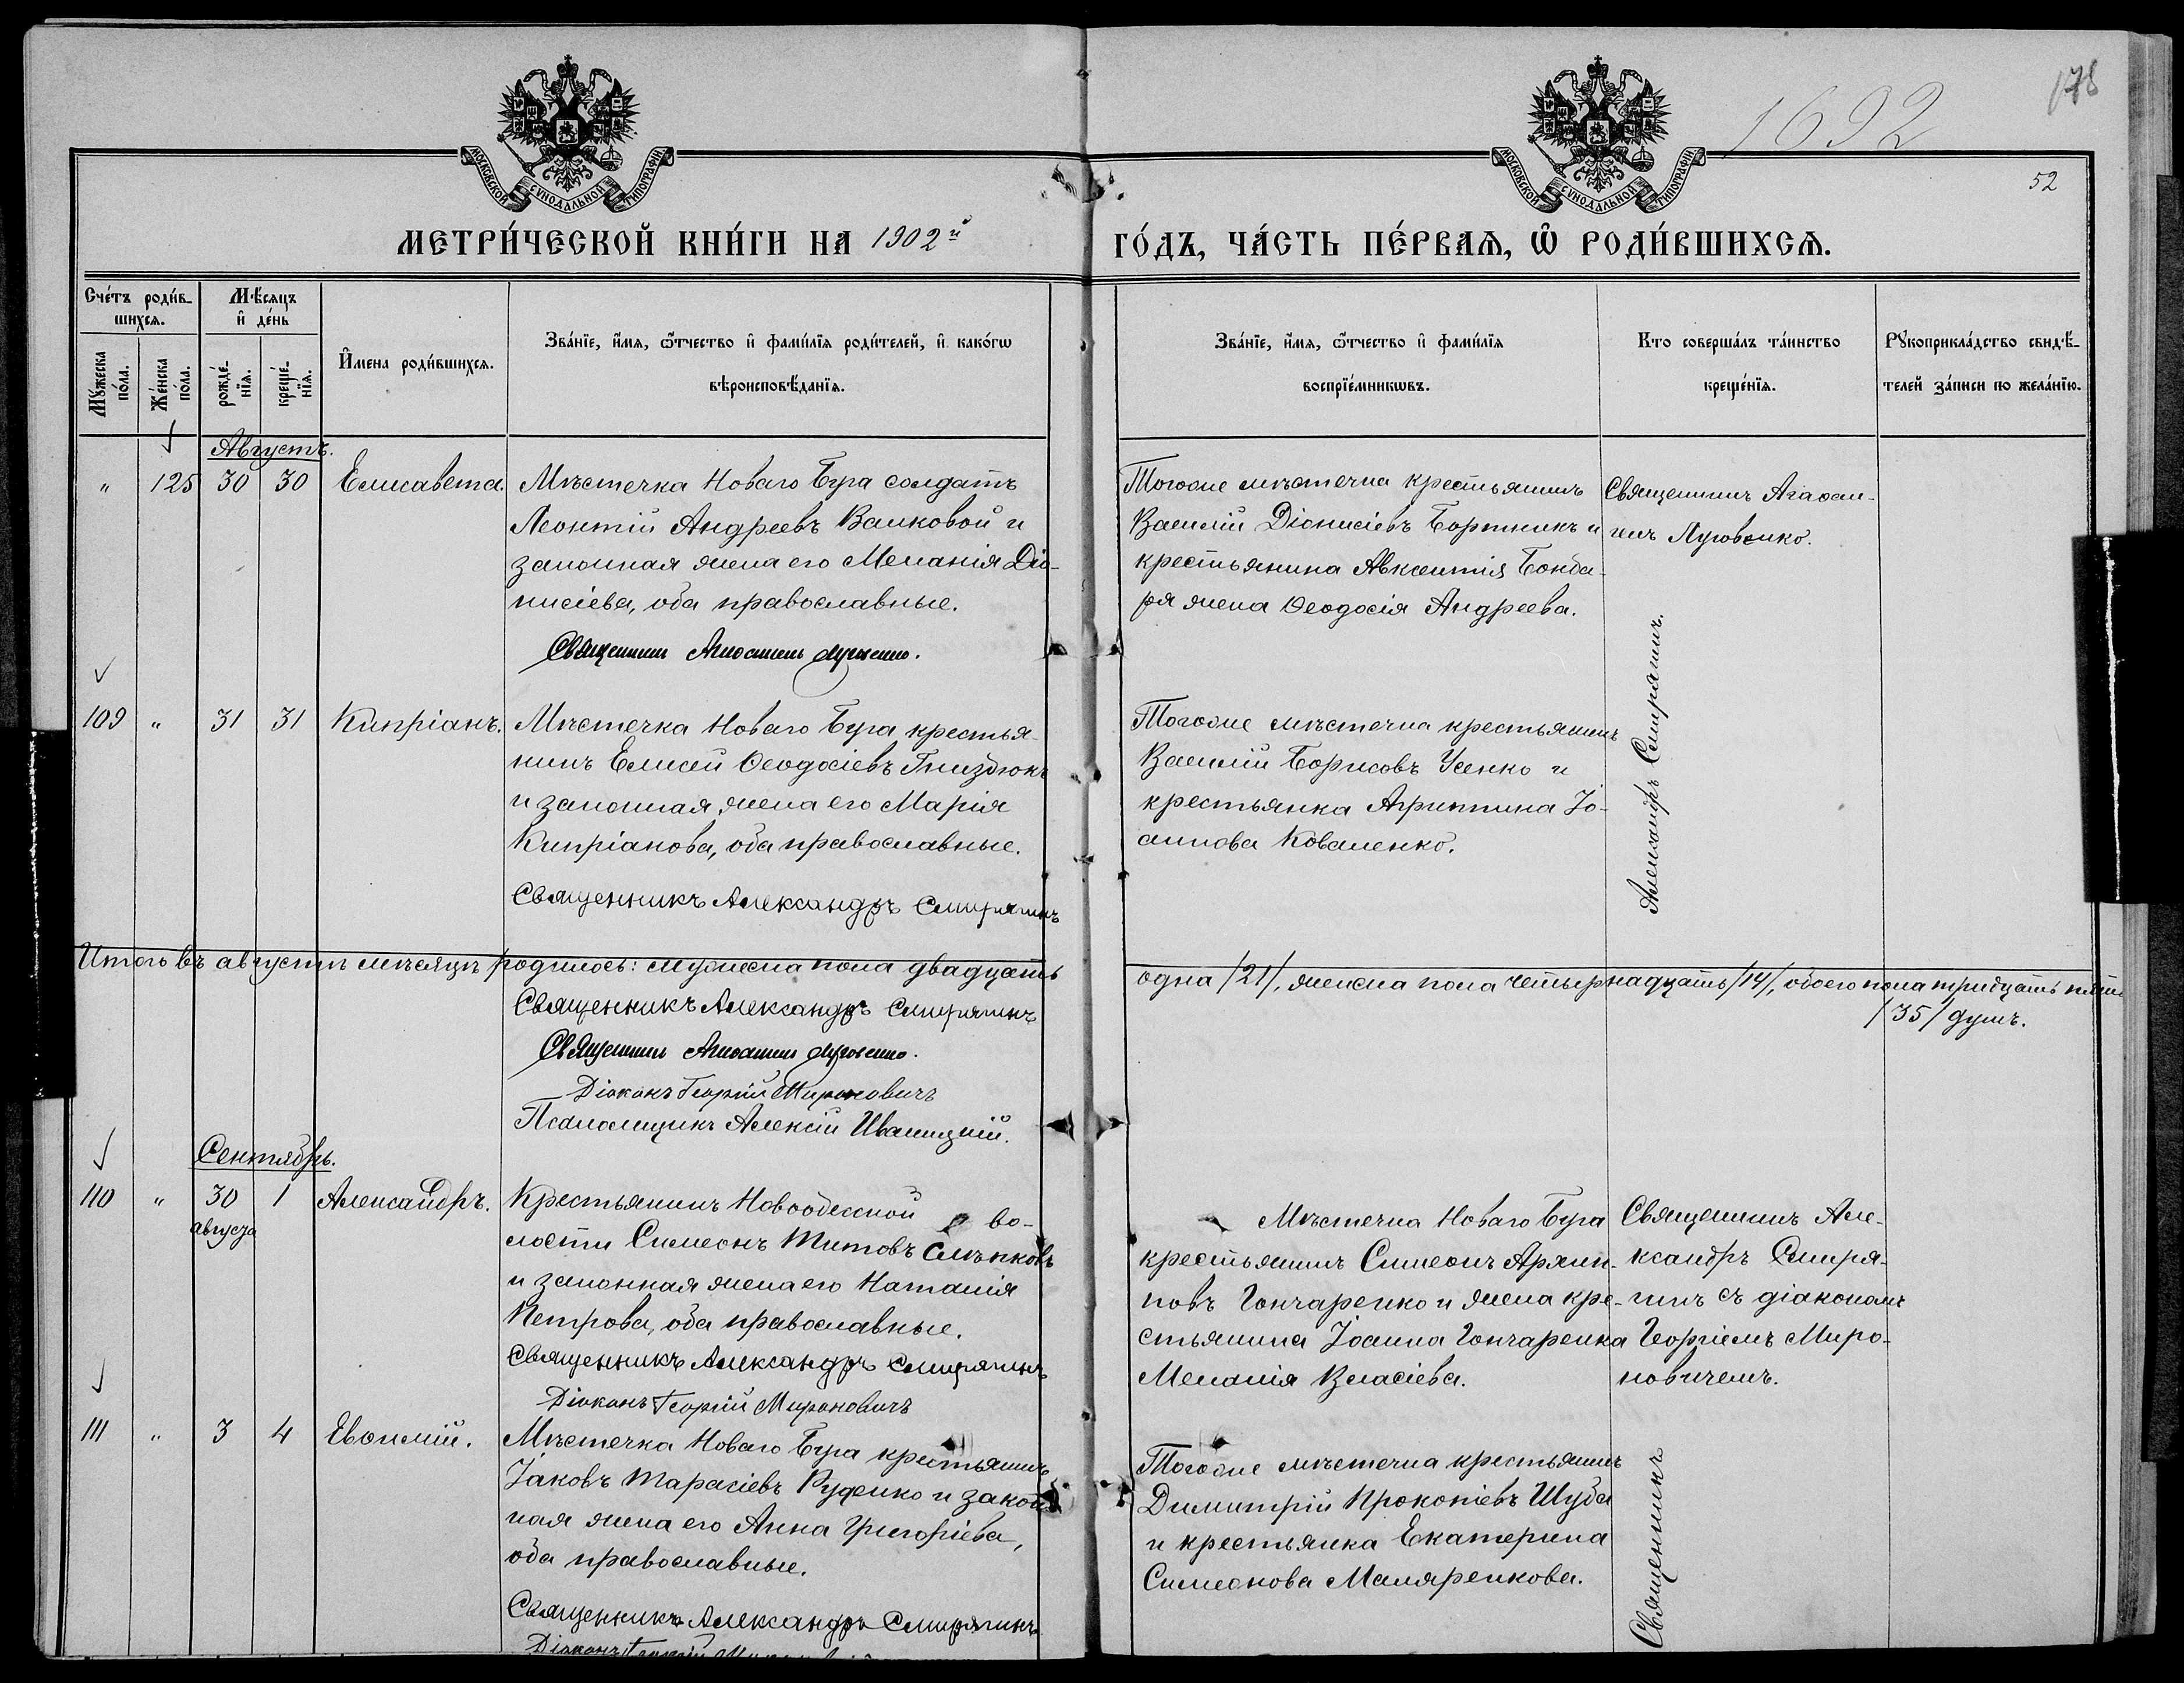 1692
178
52
МОСКОВСКОЙ СѴНОДАЛЬНОЙ ТИПОГРАФІИ
МОСКОВСКОЙ СѴНОДАЛЬНОЙ ТИПОГРАФІИ
МЕТРИ́ЧЕСКОЙ КНИ́ГИ НА 1902й
ГО́ДЪ, ЧА́СТЬ ПЕ́РВАѦ, Ѽ РОДИ́ВШИХСѦ.
Сче́тъ роди́в-
шихсѧ.
Мꙋжеска по́ла.
Же́нска по́ла.
Мѣ́сѧцъ
и҆ де́нь
рожде́-
нїѧ.
креще́-
нїѧ.
И҆мена роди́вшихсѧ.
Зва́нїе, и҆́мѧ, ѻ҆́тчество и҆ фами́лїѧ роди́телей, и҆ како́гѡ
вѣроисповѣ́данїѧ.
Зва́нїе, и҆́мѧ, ѻ҆́тчество и҆ фами́лїѧ
воспрїе́мникѡвъ.
Кто соверша́лъ та́инство
креще́нїѧ.
Рꙋкоприкла́дство свидѣ́-
телей за́писи по жела́нїю.
Августъ.
" 125 30 30 Елисавета.
Мѣстечка Новаго Буга солдатъ
Леонтій Андреевъ Валковой и
законная жена его Меланія Діо-
нисіева, оба православные.
Священникъ Агаѳангелъ Луговенко.
Тогоже мѣстечка крестьянинъ
Василій Діонисіевъ Бортникъ и
крестьянина Авксентія Бонда-
ря жена Ѳеодосія Андреева.
Священникъ Агаѳан-
гелъ Луговенко.
109 " 31 31 Кипріанъ.
Мѣстечка Новаго Буга крестья-
нинъ Елисей Ѳеодосіевъ Гниздюкъ
и законная жена его Марія
Кипріанова, оба православные.
Священникъ Александръ Смирягинъ
Тогоже мѣстечка крестьянинъ
Василій Борисовъ Усенко и
крестьянка Агриппина Іо-
аннова Коваленко.
Александръ Смирягинъ.
Итого въ августѣ мѣсяцѣ родилось: мужеска пола двадцать
одна /21/, женска пола четырнадцать /14/, обоего пола тридцать пять
/35/ душъ.
Священникъ Александръ Смирягинъ
Священникъ Агаѳангелъ Луговенко.
Діаконъ Георгій Мироновичъ
Псаломщикъ Алексій Иваницкій.
Сентябрь.
110 " 30 1 Александръ.
августа
Крестьянинъ Новоодесской во-
лости Симеонъ Титовъ Слѣпковъ
и законная жена его Наталія
Петрова, оба православные.
Священникъ Александръ Смирягинъ
Діаконъ Георгій Мироновичъ
Мѣстечка Новаго Буга
крестьянинъ Симеонъ Архип-
повъ Гончаренко и жена кре-
стьянина Іоанна Гончаренка
Меланія Власіева.
Священникъ Але-
ксандръ Смиря-
гинъ съ діакономъ
Георгіемъ Миро-
новичемъ.
111 " 3 4 Евѳимій.
Мѣстечка Новаго Буга крестьянинъ
Іаковъ Тарасіевъ Руденко и закон-
ная жена его Анна Григоріева,
оба православные.
Священникъ Александръ Смирягинъ
Діаконъ Георгій
Тогоже мѣстечка крестьянинъ
Димитрій Прокопіевъ Шуба
и крестьянка Екатерина
Симеонова Маляренкова.
Священникъ